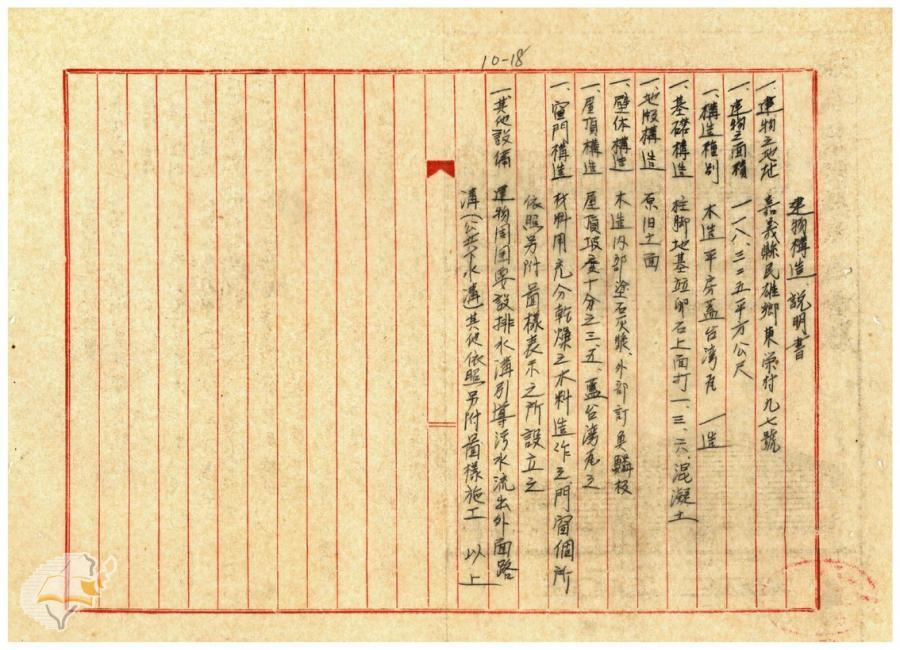 10-18
建物構造說明書
一、建物之地址 嘉義縣民雄鄉東榮村九七號
一、建物之面積 一一八.三二五平方公尺
一、構造種別 木造平房蓋台湾瓦 一造
一、基礎構造 柱脚地基並卵石上面打一、三、六、混凝土
一、地版構造 原旧土面
一、壁体構造 木造內部塗石灰漿、外部訂魚鱗板
一、屋頂構造 屋頂坡度十分之三、五、蓋台湾瓦之
一、窗門構造 材料用充分乾燥之木料造作之門窗個所
依照另附啚樣表示之所設立之
一、其他設備 建物周囬要設排水溝引導污水流出外面路
溝(公共下水溝其他依照另附啚樣施工 以上